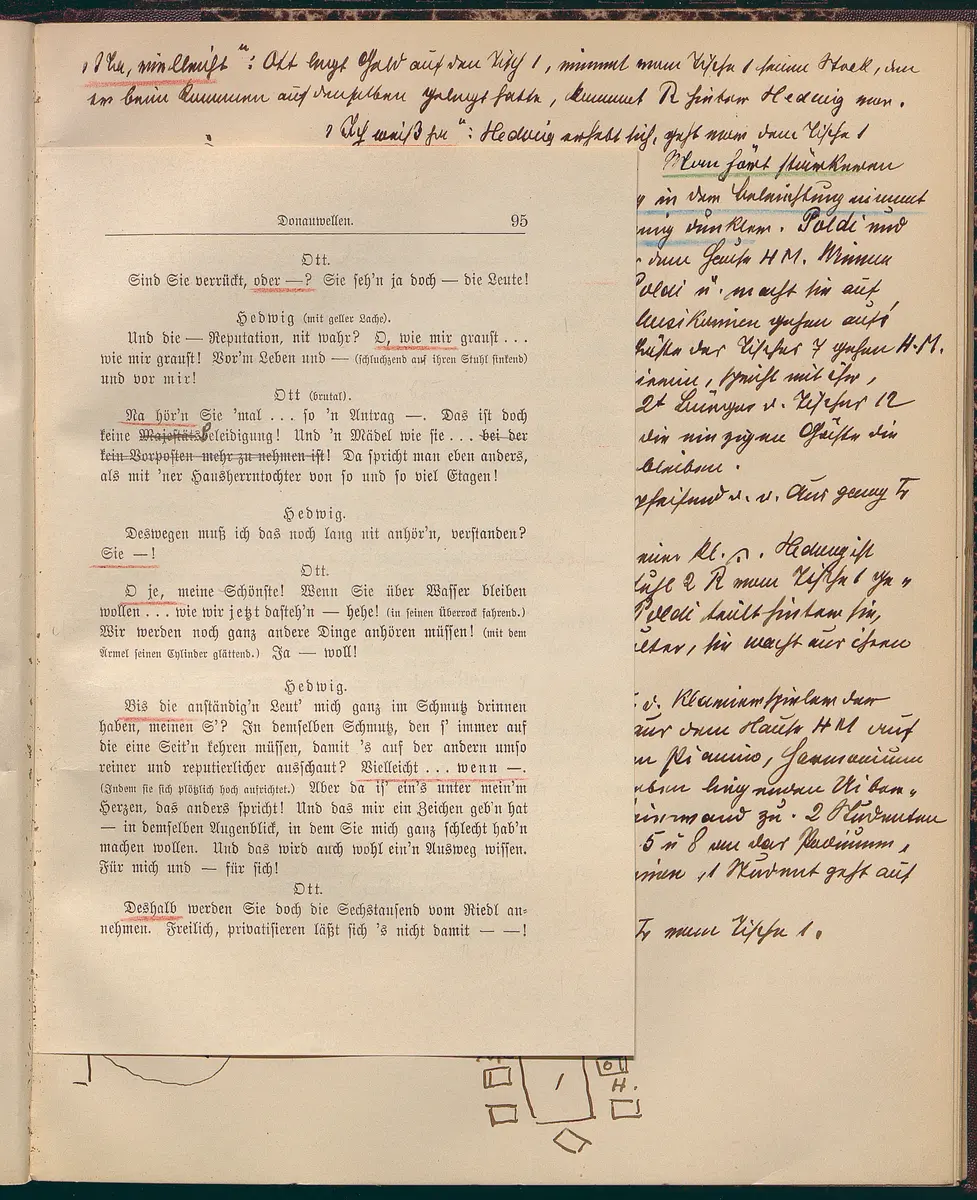 „Na, vielleicht“: Ott legt Geld auf den Tisch 1, nimmt vom Tische 1 seinen Stock, den
er beim Kommen auf denselben gelegt hatte, kommt R hinter Hedwig vor.
„Ich weiß ja“: Hedwig erhebt sich, geht vom dem Tische 1
Man hört stärkeren
in dem Beleuchtung nimmt
dunkler. Poldi und
dem Hause H M. Minna
Poldi u. macht sie auf
Musikanten gehen aufs
des Tisches 7 gehen H. M.
spricht mit ihr,
2t Bürger v. Tische 12
die einzigen Gäste die
bleiben.
pfeifend
Hedwig ist
2 R vom Tische 1 ge-
Poldi hinter sie,
sie macht aus ihren
d. Klavierspieler der
aus dem Hause H M auf
Pianino, Harmonium
liegenden
zu. 2 Studenten
5 u 8 an das Podium,
1 Student geht auf
vom Tische 1.
Donauwellen. 95
Ott.
Sind Sie verrückt, oder —? Sie seh'n ja doch — die Leute!
Hedwig (mit geller Lache).
Und die — Reputation, nit wahr? O, wie mir graust . . .
wie mir graust! Vor'm Leben und — (schluchzend auf ihren Stuhl sinkend)
und vor mir!
Ott (brutal).
Na hör'n Sie 'mal . . . so 'n Antrag —. Das ist doch
keine MajestätsBeleidigung! Und 'n Mädel wie sie . . . bei der
kein Vorposten mehr zu nehmen ist! Da spricht man eben anders,
als mit 'ner Hausherrntochter von so und so viel Etagen!
Hedwig.
Deswegen muß ich das noch lang nit anhör'n, verstanden?
Sie —!
Ott.
O je, meine Schönste! Wenn Sie über Wasser bleiben
wollen . . . wie wir jetzt dasteh'n — hehe! (in seinen Überrock fahrend.)
Wir werden noch ganz andere Dinge anhören müssen! (mit dem
Ärmel seinen Cylinder glättend.) Ja — woll!
Hedwig.
Bis die anständig'n Leut' mich ganz im Schmutz drinnen
haben, meinen S'? In demselben Schmutz, den s' immer auf
die eine Seit'n kehren müssen, damit 's auf der andern umso
reiner und reputierlicher ausschaut? Vielleicht . . . wenn —.
(Indem sie sich plötzlich hoch aufrichtet.) Aber da is' ein's unter mein'm
Herzen, das anders spricht! Und das mir ein Zeichen geb'n hat
— in demselben Augenblick, in dem Sie mich ganz schlecht hab'n
machen wollen. Und das wird auch wohl ein'n Ausweg wissen.
Für mich und — für sich!
Ott.
Deshalb werden Sie doch die Sechstausend vom Riedl an-
nehmen. Freilich, privatisieren läßt sich 's nicht damit — —!
1
H.